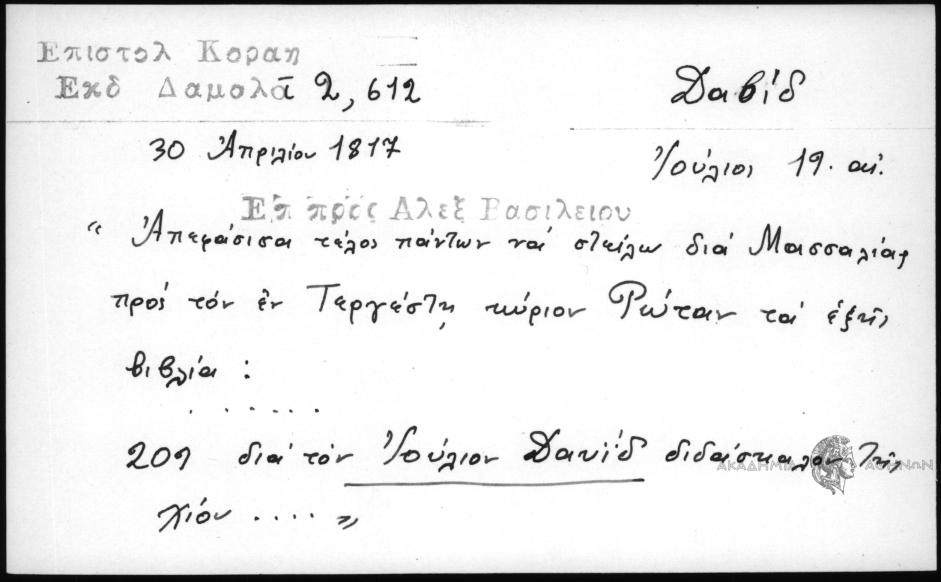 Επιστολ Κοραη
Εκδ Δαμαλᾶ 2, 612
Δαβίδ
30 Ἀπριλίου 1817
Ἰούλιος 19. αἰ.
Επ προς Αλεξ Βασιλειου
“ Ἀπεφάσισα τέλος πάντων νά στείλω διά Μασσαλίας
πρός τόν ἐν Τεργέστῃ κύριον Ρώταν τά ἑξῆς
βιβλία :
. . . . . .
διά τόν Ἰούλιον Δαυΐδ διδάσκαλον τῆς
Χίου . . . . ”
ΑΚΑΔΗΜΙΑ ΑΘΗΝΩΝ